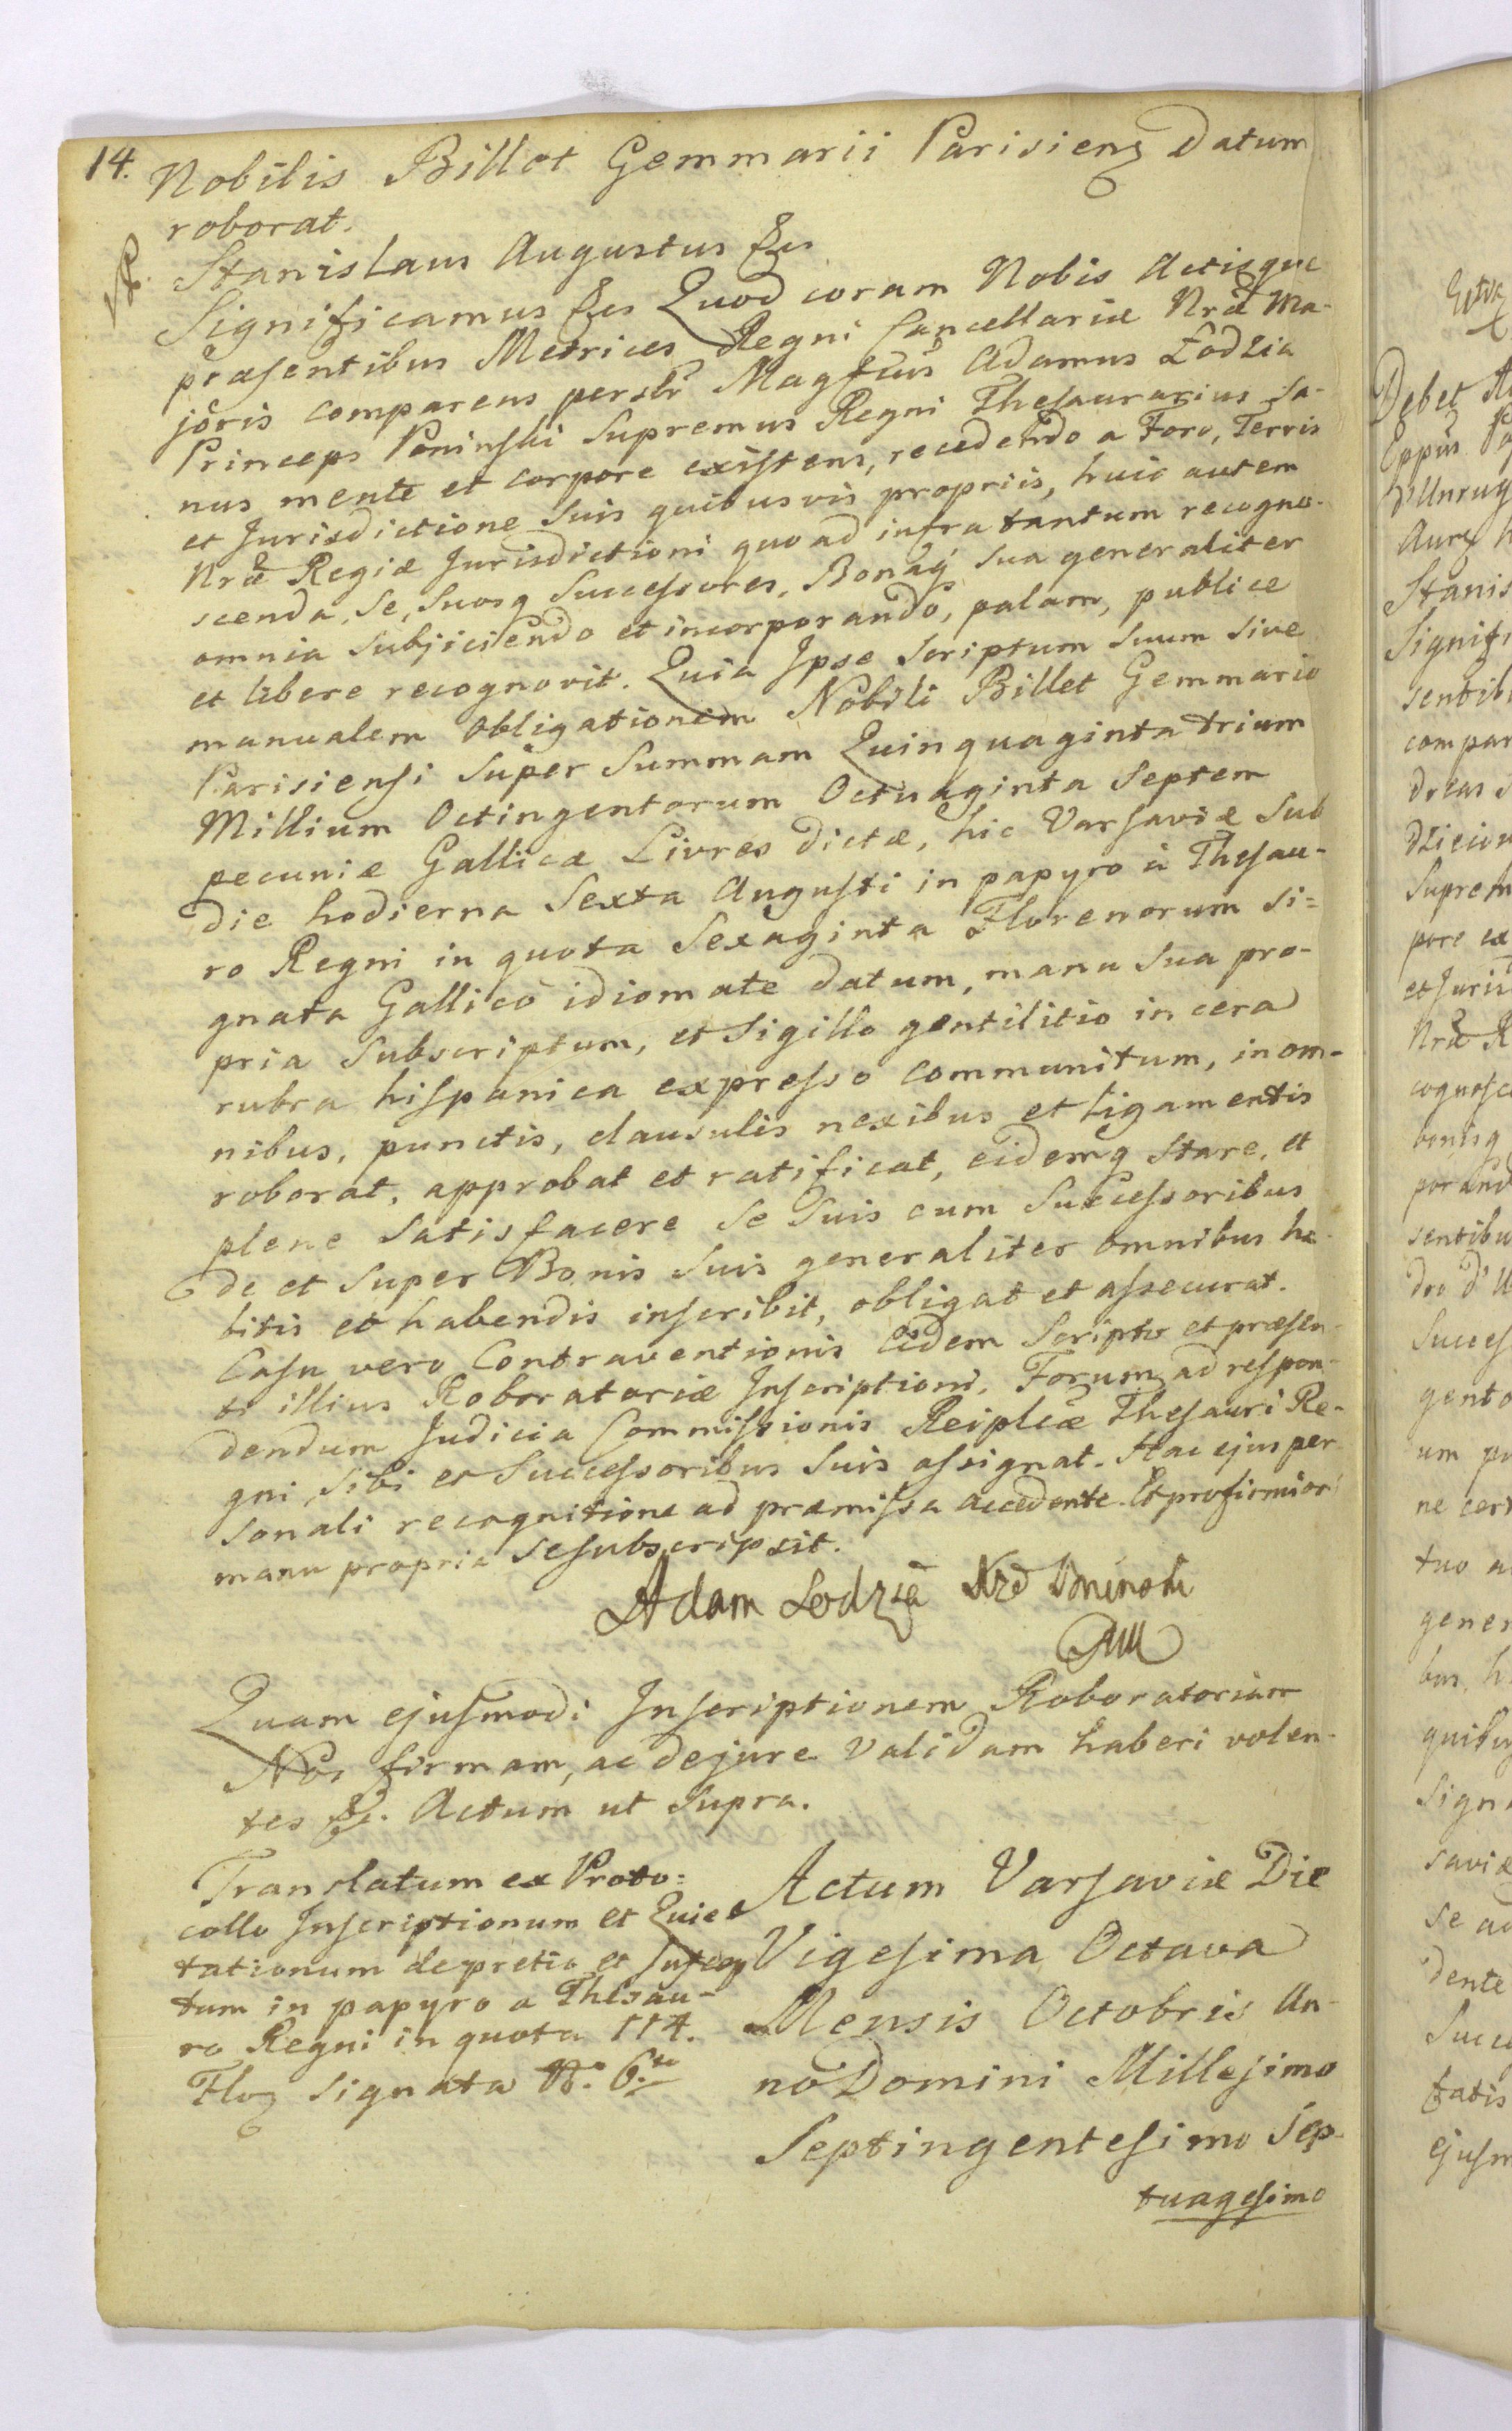 14.
Nobilis Billet Gemmarii Parisiens Datum
roborat.
Stanislaus Augustus &es
Significamus &es Quod coram Nobis Actisque
præsentibus Metrices Regni Cancellariæ Nræ Ma-
joris comparens perslr Magfcus Adamus Łodzia
Princeps Poninski Supremus Regni Thesaurarius sa-
nus mente et corpore existens, recedendo a Foro, Terris
et Jurisdictione suis quibusvis propriis, huic autem
Nræ Regiæ Jurisdictioni quo ad infra tantum recogno-
scenda, se, suosq Successores, Bonaq sua generaliter
omnia subjiciendo et incorporando, palam, publice
et libere recognovit. Quia Ipse scriptum suum sive
manualem Obligationem Nobili Billet Gemmario
Parisiensi super Summam Quinquaginta trium
Millium Octingentorum Octuaginta Septem
pecuniæ Gallicæ Livres dictæ, hic Varsaviæ sub
die hodierna Sexta Augusti in papyro à Thesau-
ro Regni in quota Sexaginta Florenorum si=
gnata Gallico idiomate datum, manu sua pro-
pria subscriptum, et Sigillo gentilitio in cera
rubra hispanica expresso communitum, in om-
nibus, punctis, clausulis nexibus et ligamentis
roborat, approbat et ratificat, eidemq stare, et
plene satisfacere se suis cum Successoribus
de et super Bonis suis generaliter omnibus ha-
bitis et habendis inscribit, obligat et assecurat.
Casu vero Contraventionis eidem Scripto et præsen-
ti illius Roboratoriæ Inscriptioni, Forum ad respon-
dendum Judicia Commissionis Reiplcæ Thesauri Re-
gni, sibi et Successoribus suis assignat. Hac ejus per-
sonali recognitione ad præmissa accedente. Et pro firmiori
manu propria se subscripsit.
Adam Lodzia
Quam ejusmodi Inscriptionem Roboratoriam
Nos firmam, ac de jure validam haberi volen-
tes &. Actum ut supra.
Translatum ex Proto=
collo Inscriptionum et Quie
tationum de pretio et suscep
tum in papyro a Thesau-
ro Regni in quota 114.
Flor signata No. 6to
Actum Varsaviæ Die
Vigesima Octava
Mensis Octobris An-
no Domini Millesimo
Septingentesimo Sep-
tuagesimo
Debet
Stanis
Signifi
sentib
compar
Suprem
pore ex
et Juris
Nræ R
sentibu
Succes
gento
um pr
ne cer
tuo a
gener
quibu
sign
saviæ
se ad
dente
Succe
Satis
ejusm